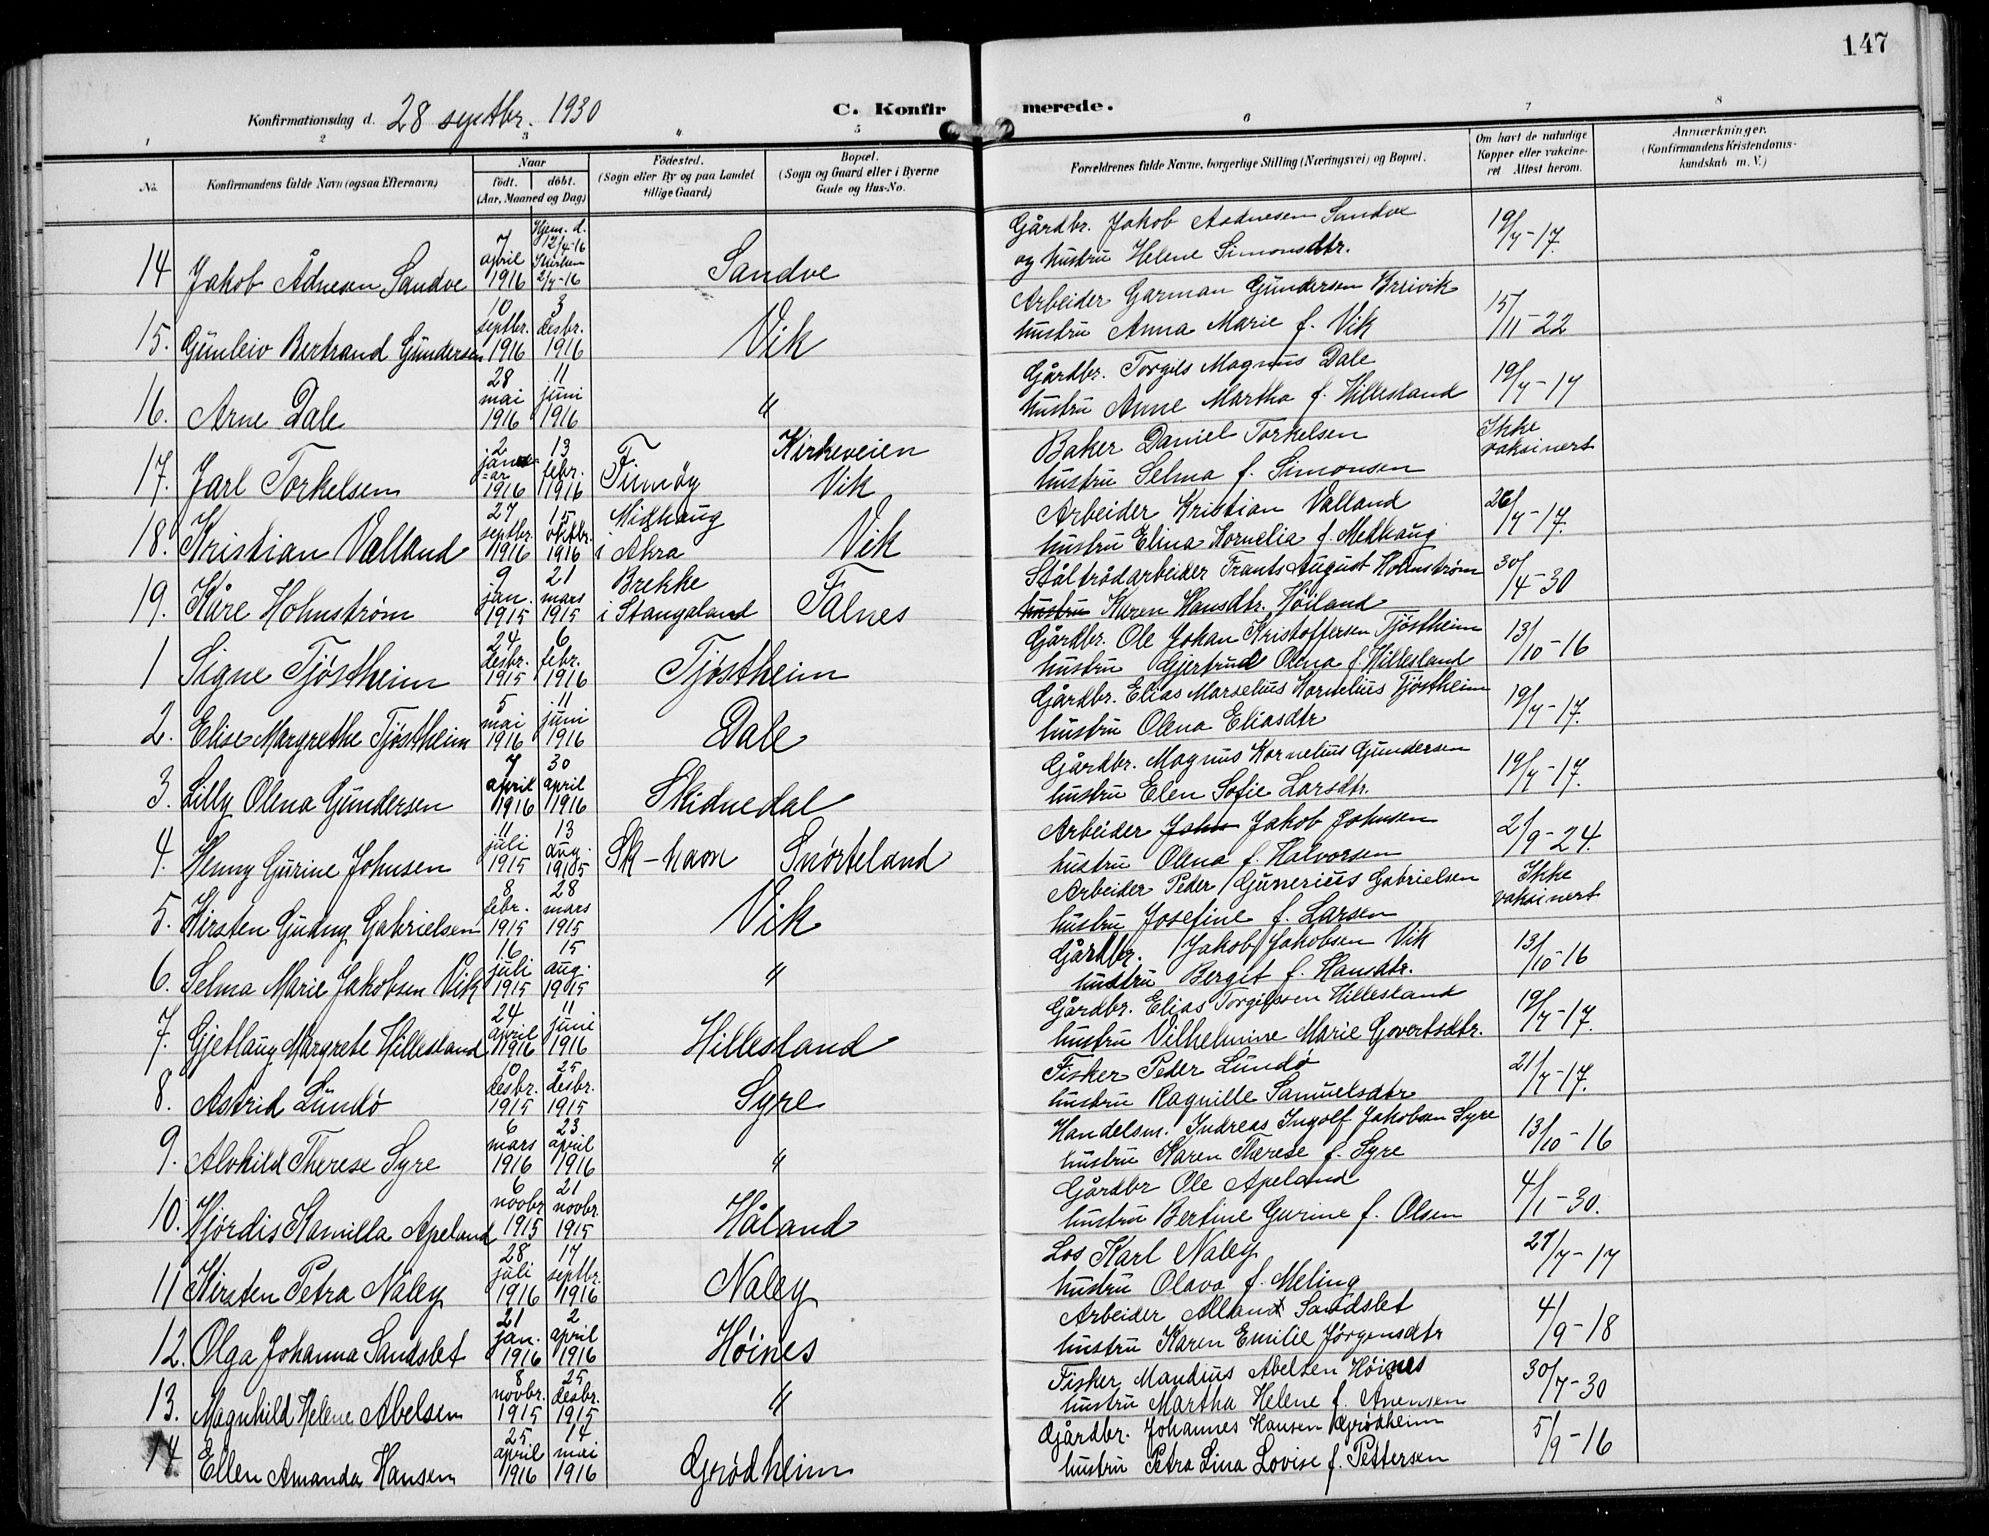 147
Konfirmationsdag d. 28 septbr. 1930
C. Konfirmerede.
1 2 3 4 5 6 7 8
No.
Konfirmandens fulde Navn (ogsaa Efternavn)
Naar
født. døbt.
(Aar, Maaned og Dag)
Fødested.
(Sogn eller By og paa Landet
tillige Gaard)
Bopæl.
(Sogn og Gaard eller i Byerne
Gade og Hus-No.
Forældrenes fulde Navne, borgerlige Stilling (Næringsvei) og Bopæl.
Om havt de naturlige
Kopper eller vakcine-
ret Attest herom.
Anmærkninger.
(Konfirmandens Kristendoms-
kundskab m. V.)
14 Jakob Ådnesen Sandve 7 april 1916 Hjem. d. 12/4-16 Kirken 2/7-16 Sandve Gårdbr. Jakob Aadnesen Sandve 19/7-17.
og hustru Helene Simonsdtr.
15. Gunleiv Bertrand Gundersen 10 septbr. 1916 3 desbr. 1916 Vik Arbeider Garman Gundersen Breivik 15/11-22
hustru Anna Marie f. Vik
16. Arne Dale 28 mai 1916 11 juni 1916 " Gårdbr. Torgils Magnus Dale 19/7-17
hustru Anne Martha f. Hillesland
17. Jarl Torkelsen 2 januar 1916 13 febr. 1916 Finnøy Kirkeveien Vik Baker Daniel Torkelsen Ikke vaksinert
hustru Selma f. Simonsen
18. Kristian Valland 27 septbr. 1916 15 oktbr. 1916 Midhaug i Åkra Vik Arbeider Kristian Valland 26/7-17.
hustru Elina Kornelia f. Medhaug
19. Kåre Holmstrøm 9 jan. 1915 21 mars 1915 Brekke i Stangaland Falnes Ståltrådarbeider Frants August Holmstrøm 30/4-30
hustru Karen Hansdtr. Høiland
1 Signe Tjøstheim 24 desbr. 1915 6 febr. 1916 Tjøstheim Gårdbr. Ole Johan Kristoffersen Tjøstheim 13/10-16
hustru Gjertrud Olena f. Hillesland
2. Elise Margrethe Tjøstheim 5 mai 1916 11 juni 1916 Dale Gårdbr. Elias Marselius Kornelius Tjøstheim 19/7-17.
hustru Olena Eliasdtr
3. Lilly Olena Gundersen 7 april 1916 30 april 1916 Skidnedal Gårdbr. Magnus Kornelius Gundersen 19/7-17.
hustru Elen Sofie Larsdtr.
4. Henny Gurine Johnsen 11 juli 1915 13 aug. 1915 Sk-havn Snørteland Arbeider John Jakob Johnsen 2/9-24
hustru Olena f. Halvorsen
5. Kirsten Gudny Gabrielsen 8 febr. 1915 28 mars 1915 Vik Arbeider Peder Gunerius Gabrielsen Ikke vaksinert
hustru Josefine f. Larsen
6. Selma Marie Jakobsen Vik 16 juli 1915 15 aug. 1915 " Gårdbr. Jakob Jakobsen Vik 13/10-16
hustru Berget f. Hansdtr.
7. Gjetlaug Margrete Hillesland 24 april 1916 11 juni 1916 Hillesland Gårdbr. Elias Torgilsen Hillesland 19/7-17.
hustru Vilhelmine Marie Govertsdtr.
8. Astrid Lundø desbr. 1915 25 desbr. 1915 Syre Fisker Peder Lundø 21/7-17.
hustru Ragnille Samuelsdtr
9. Alvhild Therese Syre 6 mars 1916 23 april 1916 " Handelsm. Andreas Ingolf Jakobsen Syre 13/10-16
hustru Karen Therese f. Syre
10. Hjørdis Kamilla Apeland 6 novbr 1915 21 novbr. 1915 Håland Gårdbr Ole Apeland 4/1-30.
hustru Bertine Gurine f. Olsen
11 Kirsten Petra Naley 28 juli 1916 17 septbr. 1916 Naley Los Karl Naley 27/7-17
hustru Olava f. Meling
12. Olga Johanna Sandslet 21 jan. 1916 2 april 1916 Høines Arbeider Alland Sandslet 4/9-18
hustru Karen Emilie Jørgensdtr
13. Magnhild Helene Abelsen 8 novbr. 1915 25 desbr. 1915 " Fisker Mandius Abelsen Høines 30/7-30
hustru Martha Helene f. Anensen
14 Ellen Amanda Hansen 25 april 1916 14 mai 1916 Grødheim Gårdbr. Johannes Hansen Grødheim 5/9-16
hustru Petra Lina Lovise f. Pettersen